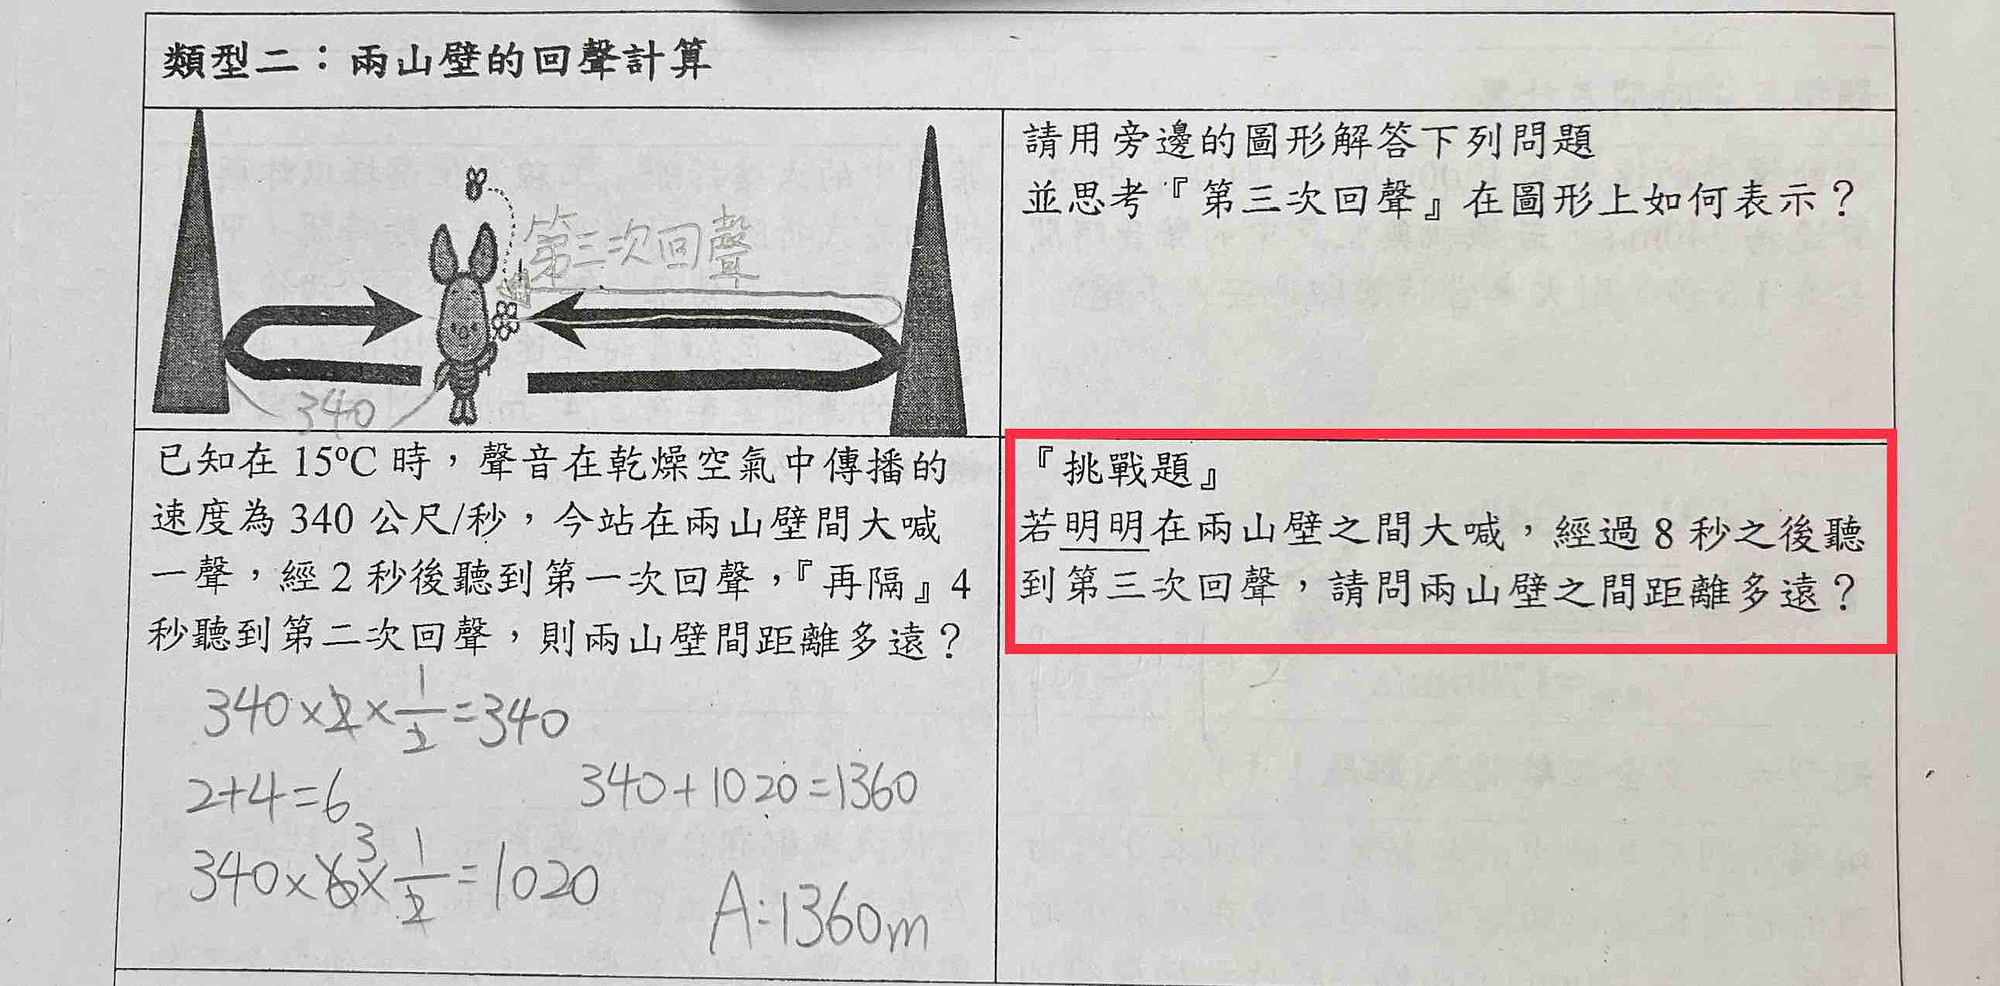 類型二：兩山壁的回聲計算
第三次回聲
340
請用旁邊的圖形解答下列問題
並思考『第三次回聲』在圖形上如何表示？
已知在 15ºC 時，聲音在乾燥空氣中傳播的
速度為 340 公尺/秒，今站在兩山壁間大喊
一聲，經 2 秒後聽到第一次回聲，『再隔』4
秒聽到第二次回聲，則兩山壁間距離多遠？
340×2×1/2=340
2+4=6
340+1020=1360
340×6×1/2=1020
3
A:1360m
『挑戰題』
若明明在兩山壁之間大喊，經過 8 秒之後聽
到第三次回聲，請問兩山壁之間距離多遠？